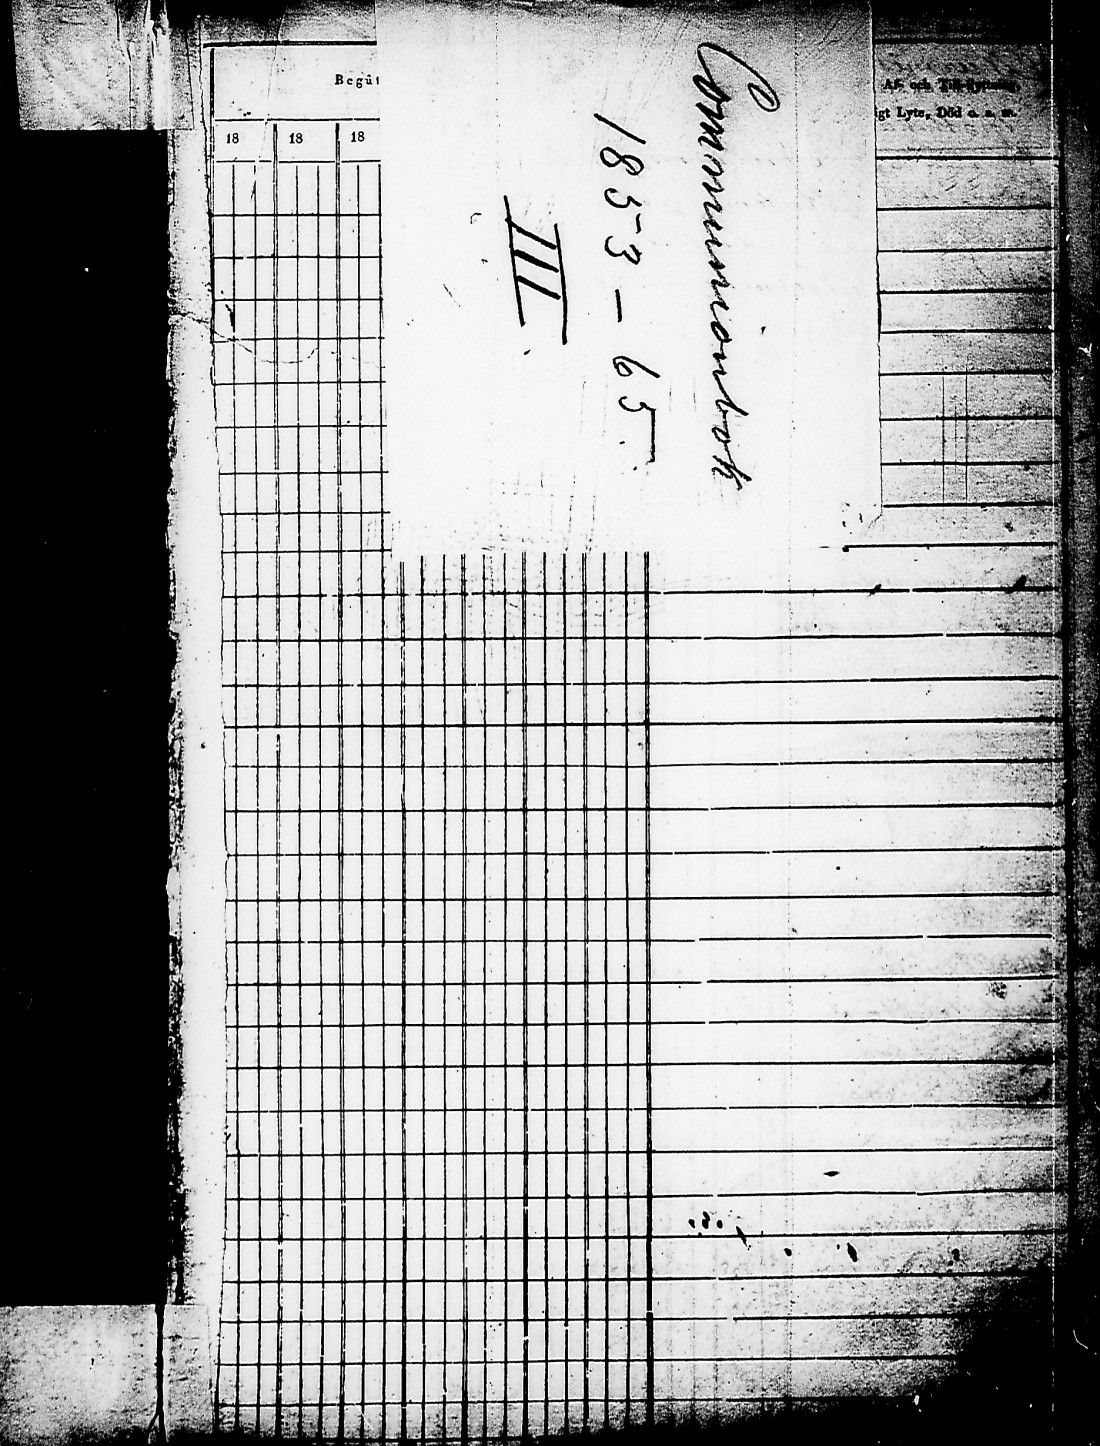 Communionbok
1853-65
III
Begåt
18 18 18
Af- och Till-flyttning,
gt Lyte, Död o. s. m.